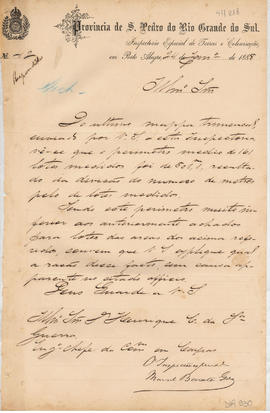 41/288
Provincia de S. Pedro do Rio Grande do Sul.
Inspectoria Especial de Terras e Colonisação,
em Porto Alegre, 24 de 1888
Illmo Snr
Do ultimo mappa trimensal
enviado por V. S. a esta Inspectoria
vê-se que o perimetro medio de
lotes medidos foi de resulta
do da divisão do numero de metros
pelo de lotes medidos.
Sendo este perimetro muito in
ferior aos anteriormente achados
para lotes das areas do acima refe
rido convem que V. S. explique qual
a razão desse facto, sem causa ap
parente no citado officio.
Deus Guarde a V. S.
Illmo Snr Dr Henrique C. da Sa
Guerra
Engo Chefe da Comm em Campos
O Inspector especial
Manoel Barata Góes